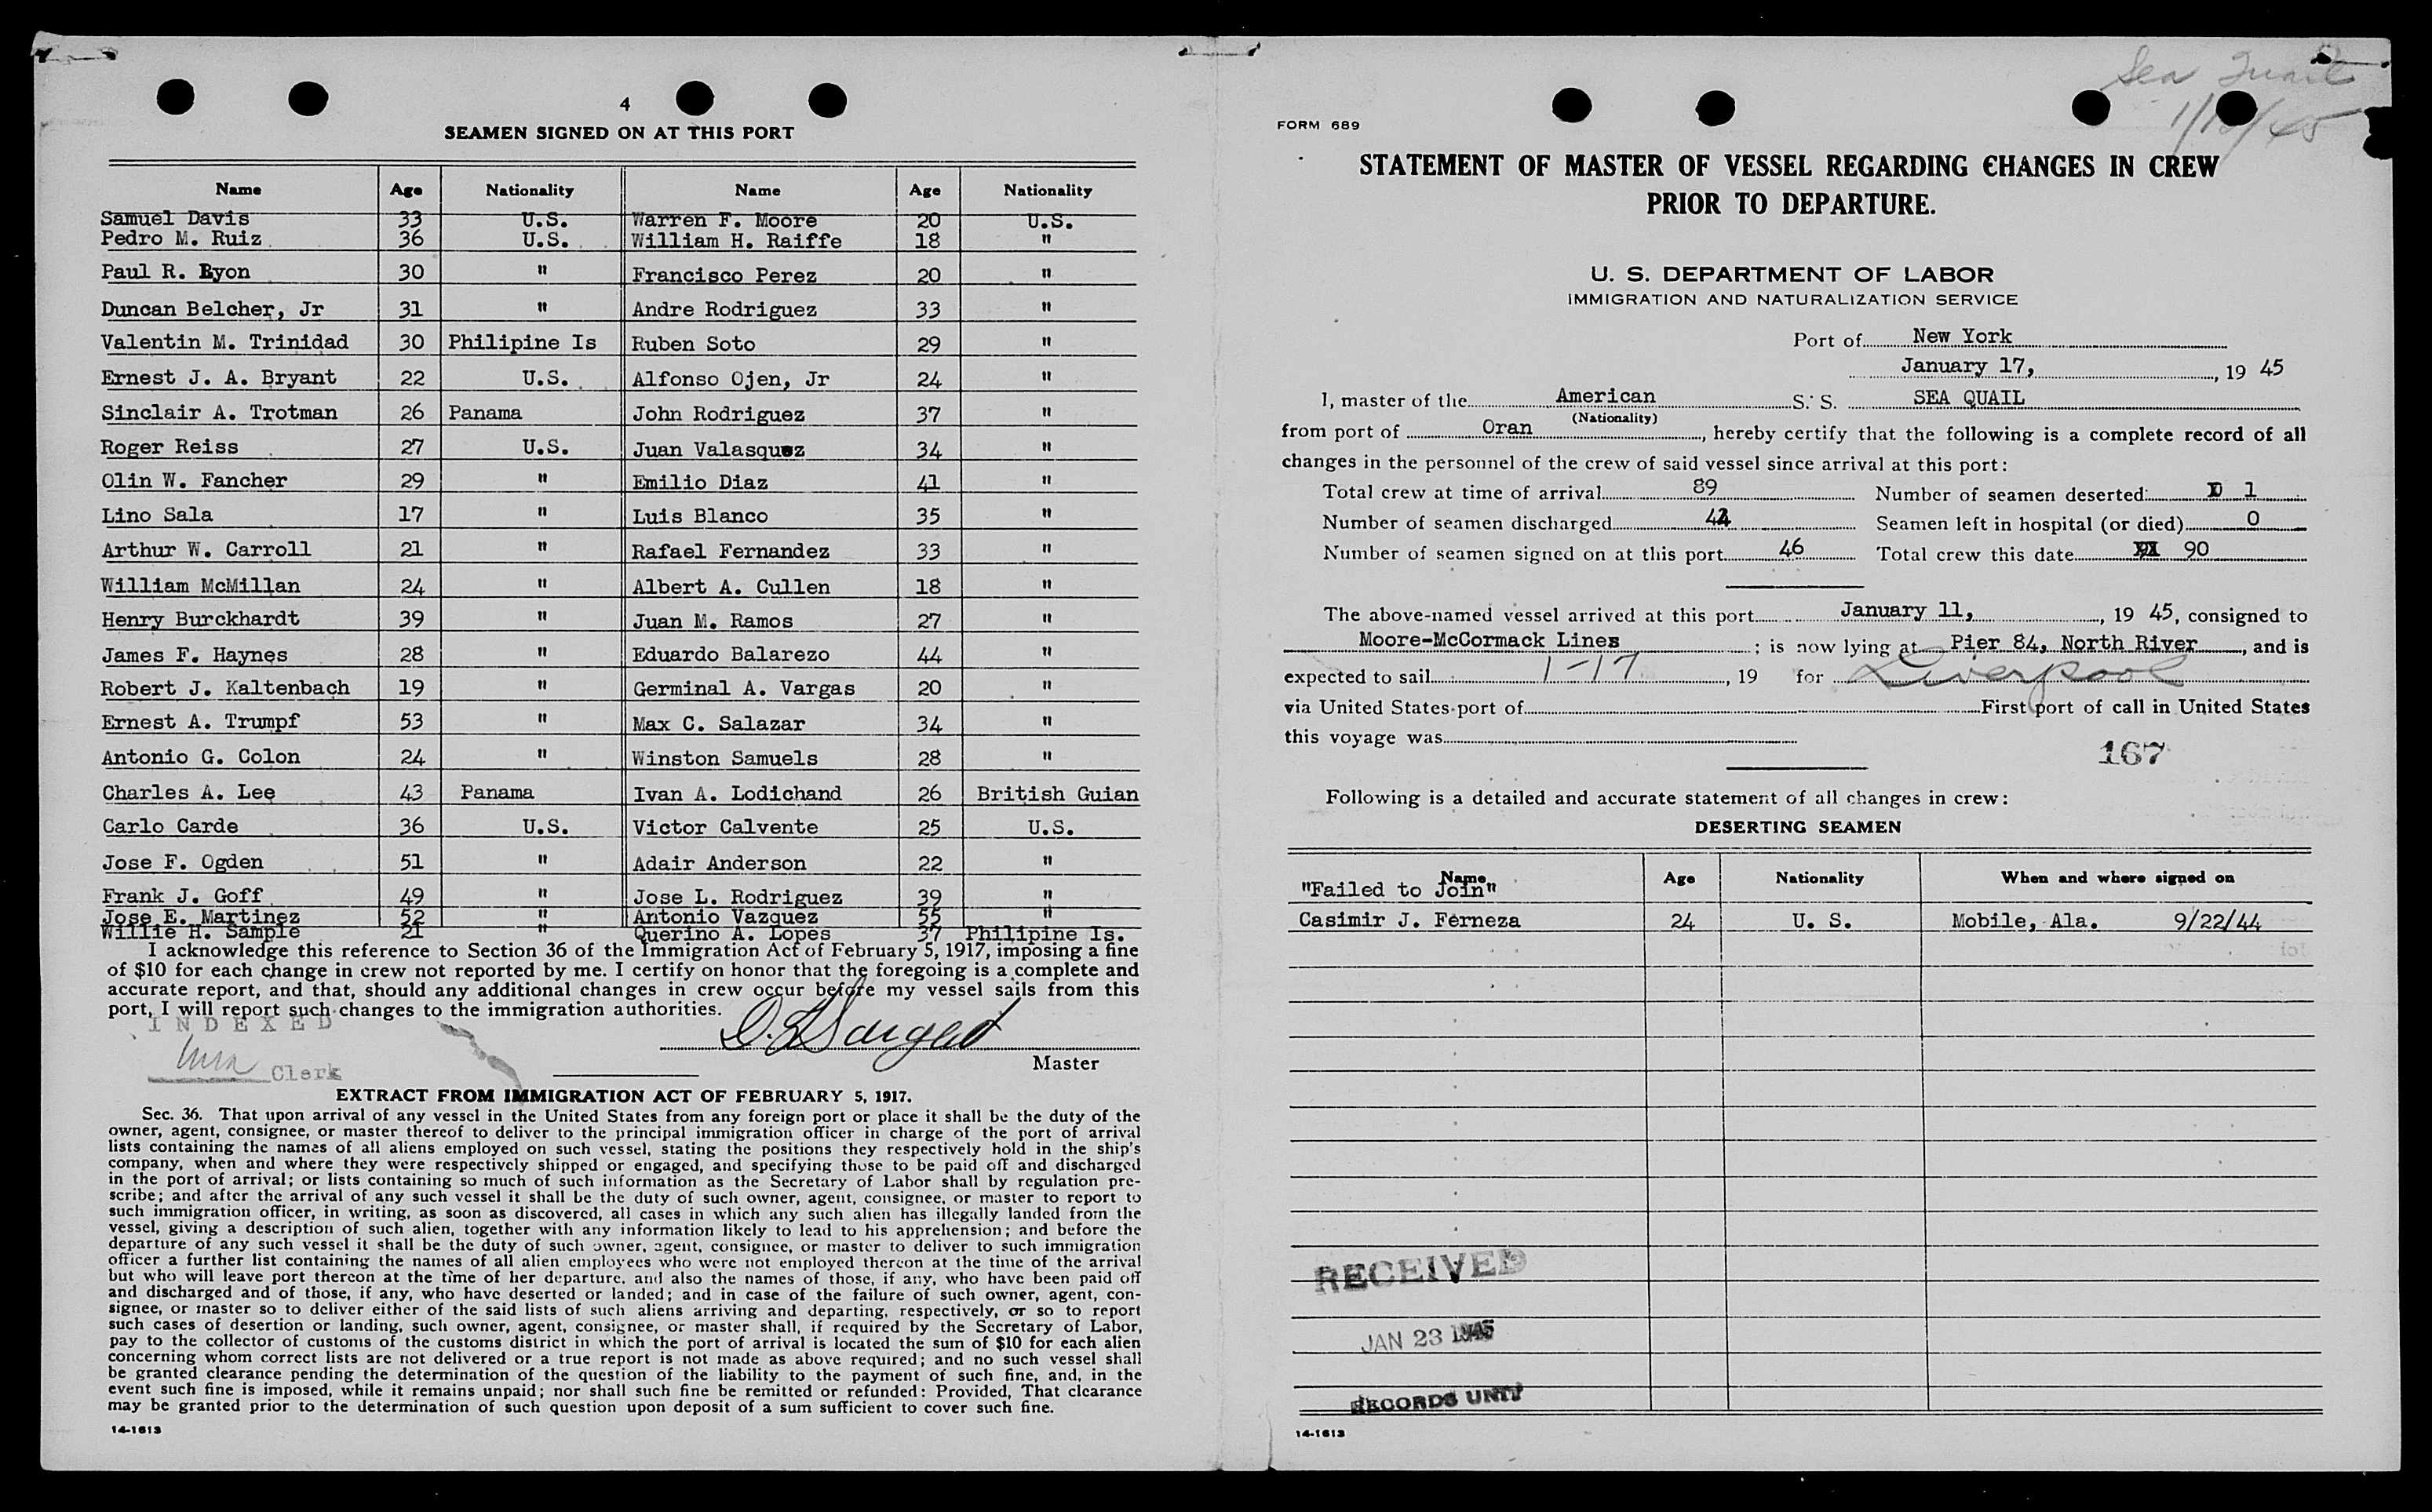 4
SEAMEN SIGNED ON AT THIS PORT
Name Age Nationality Name Age Nationality
Samuel Davis 33 U.S. Warren F. Moore 20 U.S.
Pedro M. Ruiz 36 U.S. William H. Raiffe 18 "
Paul R. Lyon 30 " Francisco Perez 20 "
Duncan Belcher, Jr 31 " Andre Rodriguez 33 "
Valentin M. Trinidad 30 Philipine Is Ruben Soto 29 "
Ernest J. A. Bryant 22 U.S. Alfonso Ojen, Jr 24 "
Sinclair A. Trotman 26 Panama John Rodriguez 37 "
Roger Reiss 27 U.S. Juan Valasquez 34 "
Olin W. Fancher 29 " Emilio Diaz 41 "
Lino Sala 17 " Luis Blanco 35 "
Arthur W. Carroll 21 " Rafael Fernandez 33 "
William McMillan 24 " Albert A. Cullen 18 "
Henry Burckhardt 39 " Juan M. Ramos 27 "
James F. Haynes 28 " Eduardo Balarezo 44 "
Robert J. Kaltenbach 19 " Germinal A. Vargas 20 "
Ernest A. Trumpf 53 " Max C. Salazar 34 "
Antonio G. Colon 24 " Winston Samuels 28 "
Charles A. Lee 43 Panama Ivan A. Lodichand 26 British Guian
Carlo Carde 36 U.S. Victor Calvente 25 U.S.
Jose F. Ogden 51 " Adair Anderson 22 "
Frank J. Goff 49 " Jose L. Rodriguez 39 "
Jose E. Martinez 52 " Antonio Vazquez 55 "
Willie H. Sample 21 " Querino A. Lopes 37 Philipine Is.
I acknowledge this reference to Section 36 of the Immigration Act of February 5, 1917, imposing a fine
of $10 for each change in crew not reported by me. I certify on honor that the foregoing is a complete and
accurate report, and that, should any additional changes in crew occur before my vessel sails from this
port, I will report such changes to the immigration authorities.
INDEXED
Clerk
Master
EXTRACT FROM IMMIGRATION ACT OF FEBRUARY 5, 1917.
Sec. 36. That upon arrival of any vessel in the United States from any foreign port or place it shall be the duty of the
owner, agent, consignee, or master thereof to deliver to the principal immigration officer in charge of the port of arrival
lists containing the names of all aliens employed on such vessel, stating the positions they respectively hold in the ship's
company, when and where they were respectively shipped or engaged, and specifying those to be paid off and discharged
in the port of arrival; or lists containing so much of such information as the Secretary of Labor shall by regulation pre-
scribe; and after the arrival of any such vessel it shall be the duty of such owner, agent, consignee, or master to report to
such immigration officer, in writing, as soon as discovered, all cases in which any such alien has illegally landed from the
vessel, giving a description of such alien, together with any information likely to lead to his apprehension; and before the
departure of any such vessel it shall be the duty of such owner, agent, consignee, or master to deliver to such immigration
officer a further list containing the names of all alien employees who were not employed thereon at the time of the arrival
but who will leave port thereon at the time of her departure, and also the names of those, if any, who have been paid off
and discharged and of those, if any, who have deserted or landed; and in case of the failure of such owner, agent, con-
signee, or master so to deliver either of the said lists of such aliens arriving and departing, respectively, or so to report
such cases of desertion or landing, such owner, agent, consignee, or master shall, if required by the Secretary of Labor,
pay to the collector of customs of the customs district in which the port of arrival is located the sum of $10 for each alien
concerning whom correct lists are not delivered or a true report is not made as above required; and no such vessel shall
be granted clearance pending the determination of the question of the liability to the payment of such fine, and, in the
event such fine is imposed, while it remains unpaid; nor shall such fine be remitted or refunded: Provided, That clearance
may be granted prior to the determination of such question upon deposit of a sum sufficient to cover such fine.
14-1613
Sea Quail
FORM 689
STATEMENT OF MASTER OF VESSEL REGARDING CHANGES IN CREW
PRIOR TO DEPARTURE.
U. S. DEPARTMENT OF LABOR
IMMIGRATION AND NATURALIZATION SERVICE
Port of New York
January 17, , 19 45
I, master of the American S. S. SEA QUAIL
(Nationality)
from port of Oran , hereby certify that the following is a complete record of all
changes in the personnel of the crew of said vessel since arrival at this port:
Total crew at time of arrival 89 Number of seamen deserted: 1
Number of seamen discharged Seamen left in hospital (or died) 0
Number of seamen signed on at this port 46 Total crew this date 90
The above-named vessel arrived at this port January 11, , 19 45, consigned to
Moore-McCormack Lines ; is now lying at Pier 84, North River , and is
expected to sail 1-17 , 19 for Liverpool
via United States port of First port of call in United States
this voyage was
167
Following is a detailed and accurate statement of all changes in crew:
DESERTING SEAMEN
Name Age Nationality When and where signed on
"Failed to Join"
Casimir J. Ferneza 24 U. S. Mobile, Ala. 9/22/44
RECEIVED
JAN 23 1945
RECORDS UNIT
14-1613